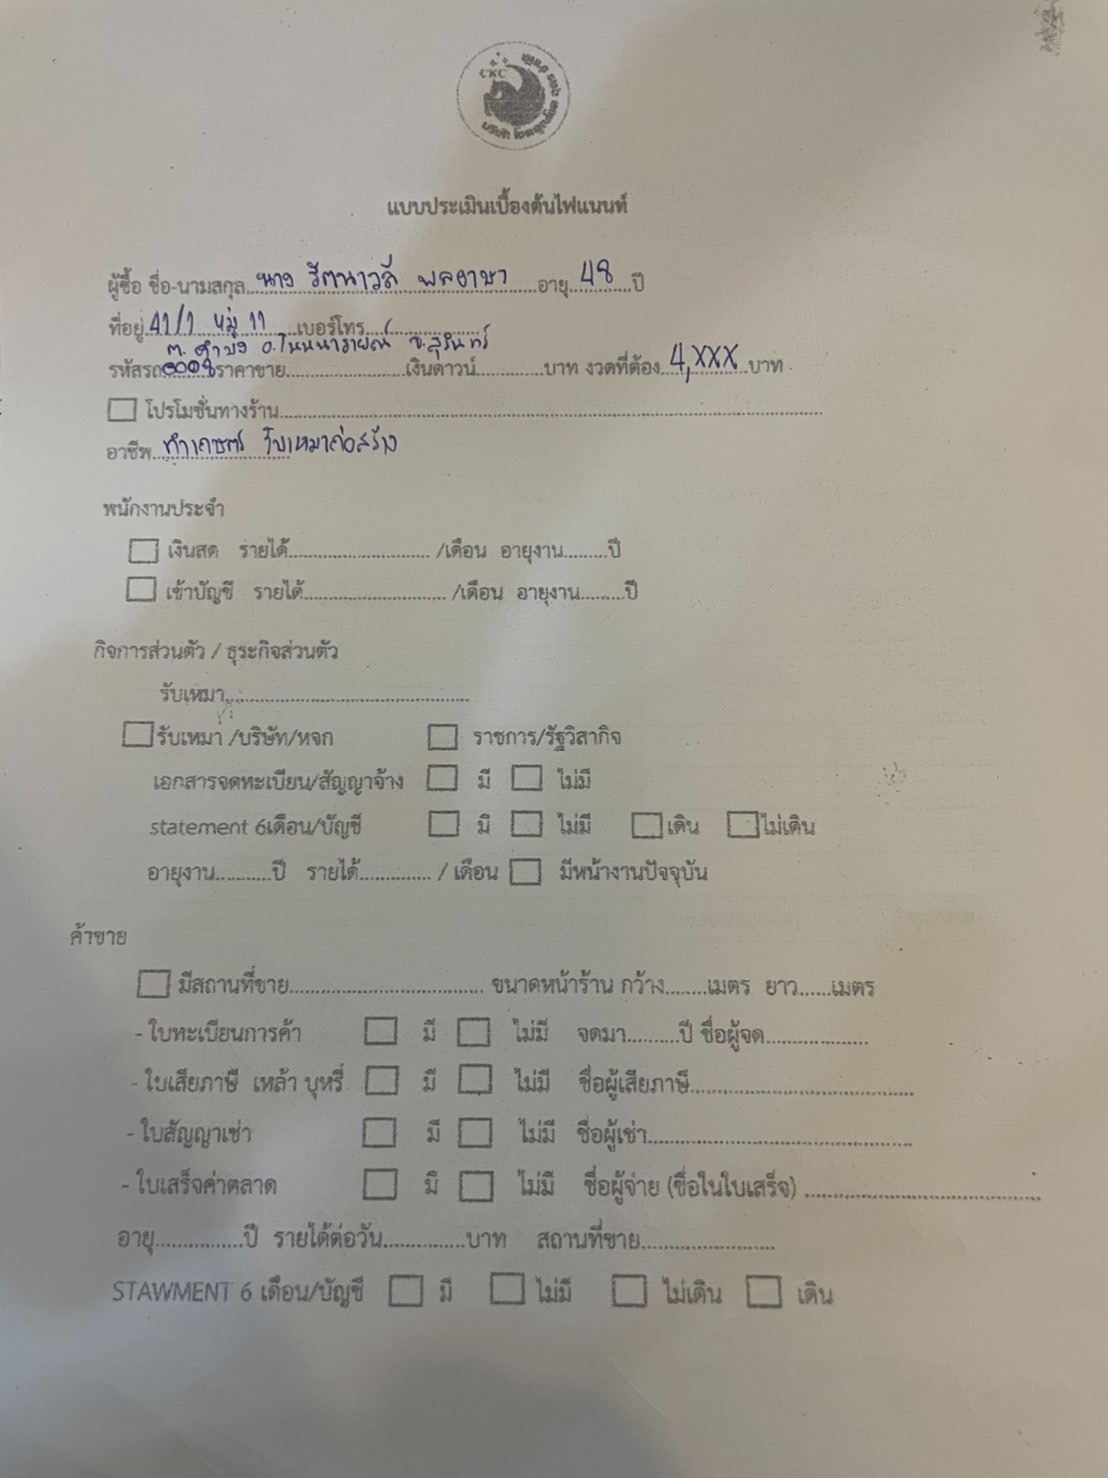 CKC
แบบประเมินเบื้องต้นไฟแนนท์
ผู้ซื้อ ชื่อ-นามสกุล นาง รัตนาวลี พลอาษา อายุ 48 ปี
ที่อยู่ 41/1 หมู่ 11 เบอร์โทร
ต. คำผง อ.โนนนารายณ์ จ.สุรินทร์
รหัสรถ ราคาขาย เงินดาวน์ บาท งวดที่ต้อง 4,XXX บาท
โปรโมชั่นทางร้าน
อาชีพ ทำเกษตร รับเหมาก่อสร้าง
พนักงานประจำ
เงินสด รายได้ /เดือน อายุงาน ปี
เข้าบัญชี รายได้ /เดือน อายุงาน ปี
กิจการส่วนตัว / ธุระกิจส่วนตัว
รับเหมา
รับเหมา /บริษัท/หจก ราชการ/รัฐวิสากิจ
เอกสารจดทะเบียน/สัญญาจ้าง มี ไม่มี
statement 6เดือน/บัญชี มี ไม่มี เดิน ไม่เดิน
อายุงาน ปี รายได้ / เดือน มีหน้างานปัจจุบัน
ค้าขาย
มีสถานที่ขาย ขนาดหน้าร้าน กว้าง เมตร ยาว เมตร
- ใบทะเบียนการค้า มี ไม่มี จดมา ปี ชื่อผู้จด
- ใบเสียภาษี เหล้า บุหรี่ มี ไม่มี ชื่อผู้เสียภาษี
- ใบสัญญาเช่า มี ไม่มี ชื่อผู้เช่า
- ใบเสร็จค่าตลาด มี ไม่มี ชื่อผู้จ่าย (ชื่อในใบเสร็จ)
อายุ ปี รายได้ต่อวัน บาท สถานที่ขาย
STAWMENT 6 เดือน/บัญชี มี ไม่มี ไม่เดิน เดิน